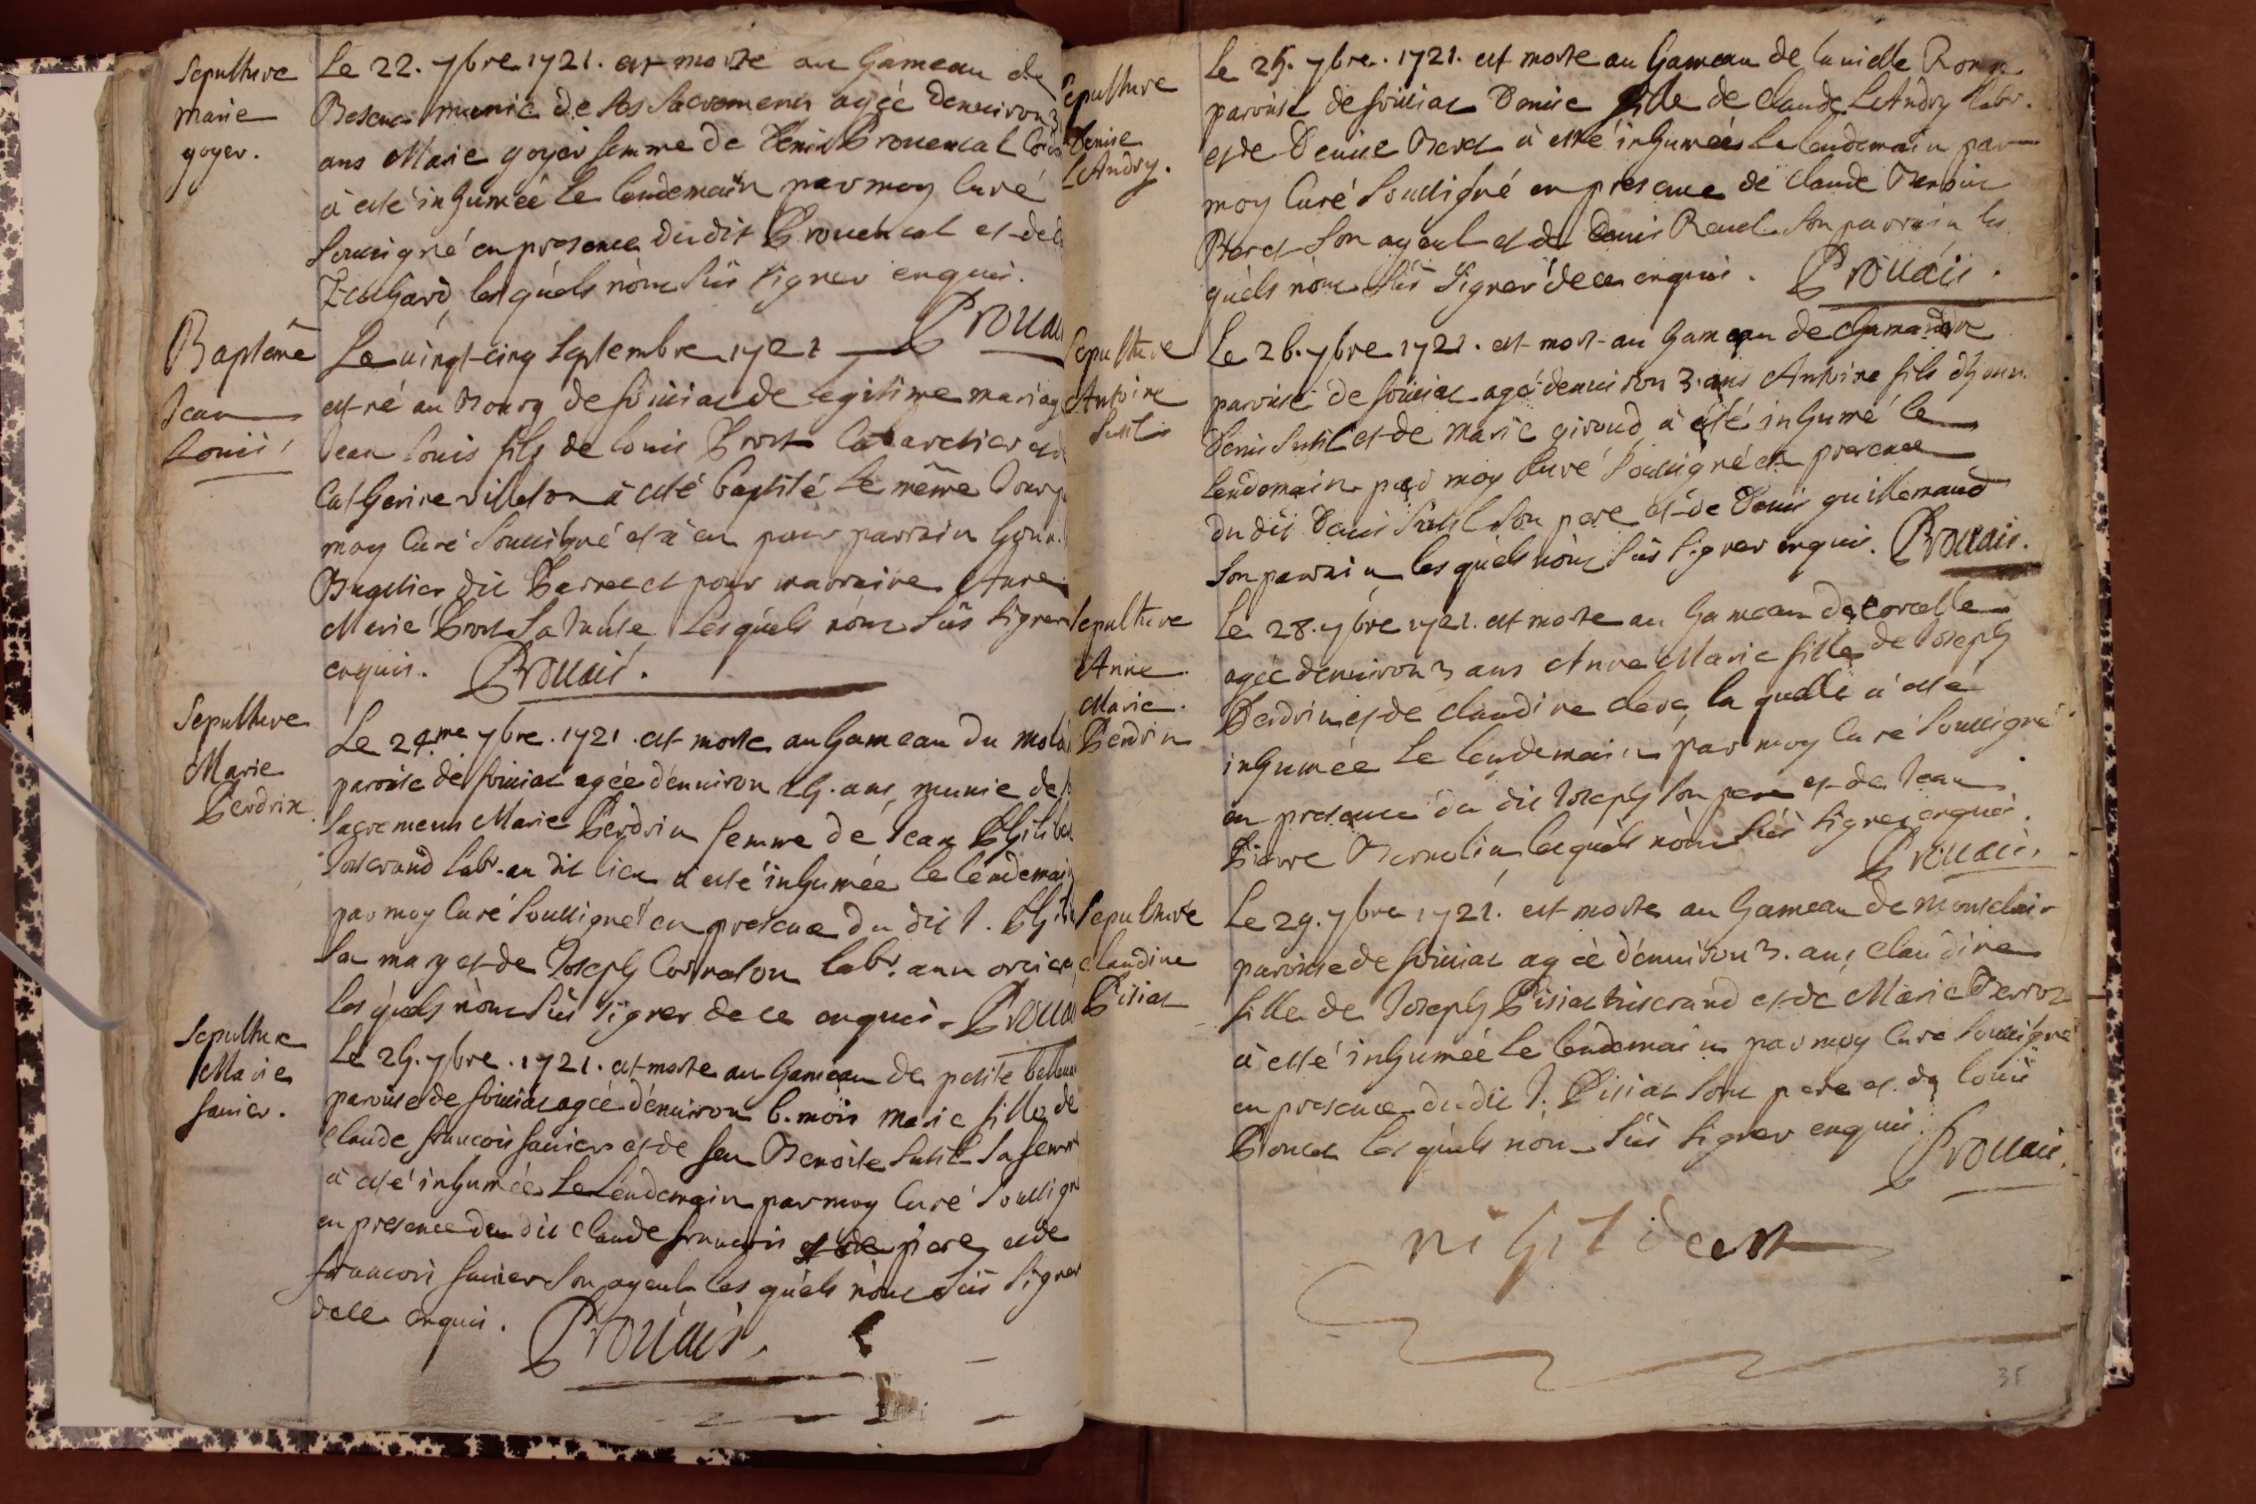 Sepulture
Marie
goyer.
Le 22. 7bre 1721. est morte au hameau de
munie de ses sacremens agée denuiron 3
ans Marie goyer femme de Denis Prouencal
à esté inhumée le lendemain par moy Curé
soussigné en presence dudit Prouencal et de
lesquels nont sûs signer enquis.
Prouais
Baptême
Jean
Louis
Le uingt-cinq Septembre 1721
est né au Bourg de foissiat de legitime mariage
Jean Louis fils de Louis Prost Cabaretier et
Catherine uilleton à esté baptisé le même Jour
moy Curé soussigné et à eu pour parrain
dit et pour marraine Anne
Marie Prost sa tante lesquels nont sûs signer
enquis. Prouais.
Sepulture
Marie
Perdrix
Le 24.me 7bre. 1721. est morte au hameau du
paroisse de foissiat agée d'enuiron 25. ans, munie de
sacremens Marie Perdrix femme de Jean
labr. au dit lieu à esté inhumée le lendemain
par moy Curé soussigné en presence du dit J.
son mary et de Joseph labr. aux
lesquels nont sûs signer de ce enquis. Prouais
Sepulture
Marie
fauier.
Le 25. 7bre. 1721. est morte au hameau de petite
paroisse de foissiat agée d'enuiron 6. mois Marie fille de
Claude francois fauier et de feu Benoite Sutil sa femme
à esté inhumée le lendemain par moy Curé soussigné
en presence du dit Claude francois et de pere et de
francois fauier son ayeul lesquels nont sûs signer
de ce enquis. Prouais.
Sepulture
Denise
LeAndry.
Le 25. 7bre. 1721. est morte au hameau de
paroisse de foissiat Denise fille de Claude LeAndry labr.
et de Denise à esté inhumée le lendemain par
moy Curé soussigné en presence de Claude
son ayeul et de Denis son parrain les
quels nont sûs signer de ce enquis. Prouais.
Sepulture
Antoine
Sutil
Le 26. 7bre 1721. est mort au hameau de
paroisse de foissiat agé denuiron 3. ans Antoine fils
Denis Sutil et de Marie giroud, à esté inhumé le
lendemain par moy Curé soussigné en presence
du dit Denis Sutil son pere et de Denis guillemaud
son parrain lesquels nont sûs signer enquis. Prouais.
Sepulture
Anne
Marie
Perdrix
Le 28. 7bre 1721. est morte au hameau de corcelle
agée denuiron 3 ans Anne Marie fille de Joseph
Perdrix et de Claudine la quelle à esté
inhumée le lendemain par moy Curé soussigné
en presence du dit Joseph son pere et de Jean
Pierre lesquels nont sûs signer enquis.
Prouais.
Sepulture
Claudine
Pisiat
Le 29. 7bre 1721. est morte au hameau de
paroisse de foissiat agée d'enuiron 3. ans Claudine
fille de Joseph Pisiat tisserand et de Marie
à esté inhumée le lendemain par moy Curé soussigné
en presence du dit J. Pisiat son pere et de Louis
Poncet lesquels nont sûs signer enquis.
Prouais.
nihil deest
35